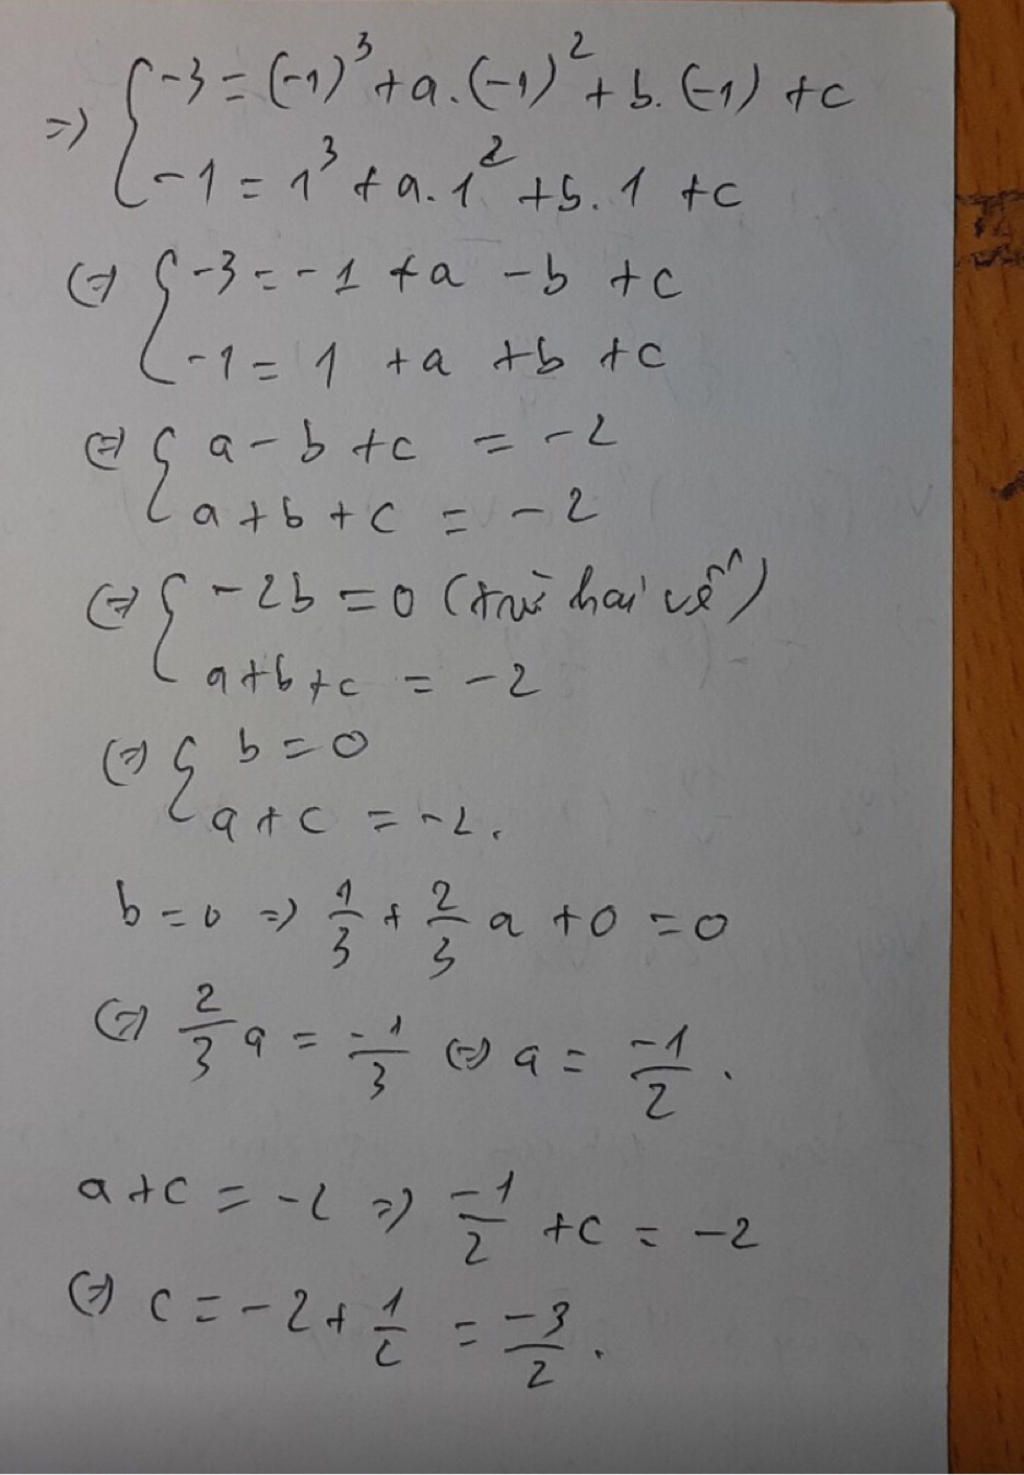 => { -3 = (-1)³ + a.(-1)² + b.(-1) + c
-1 = 1³ + a.1² + b.1 + c
<=> { -3 = -1 + a - b + c
-1 = 1 + a + b + c
<=> { a - b + c = -2
a + b + c = -2
<=> { -2b = 0 (trừ hai vế)
a + b + c = -2
<=> { b = 0
a + c = -2.
b = 0 => 1/3 + 2/3 a + 0 = 0
<=> 2/3 a = -1/3 <=> a = -1/2.
a + c = -2 => -1/2 + c = -2
<=> c = -2 + 1/2 = -3/2.